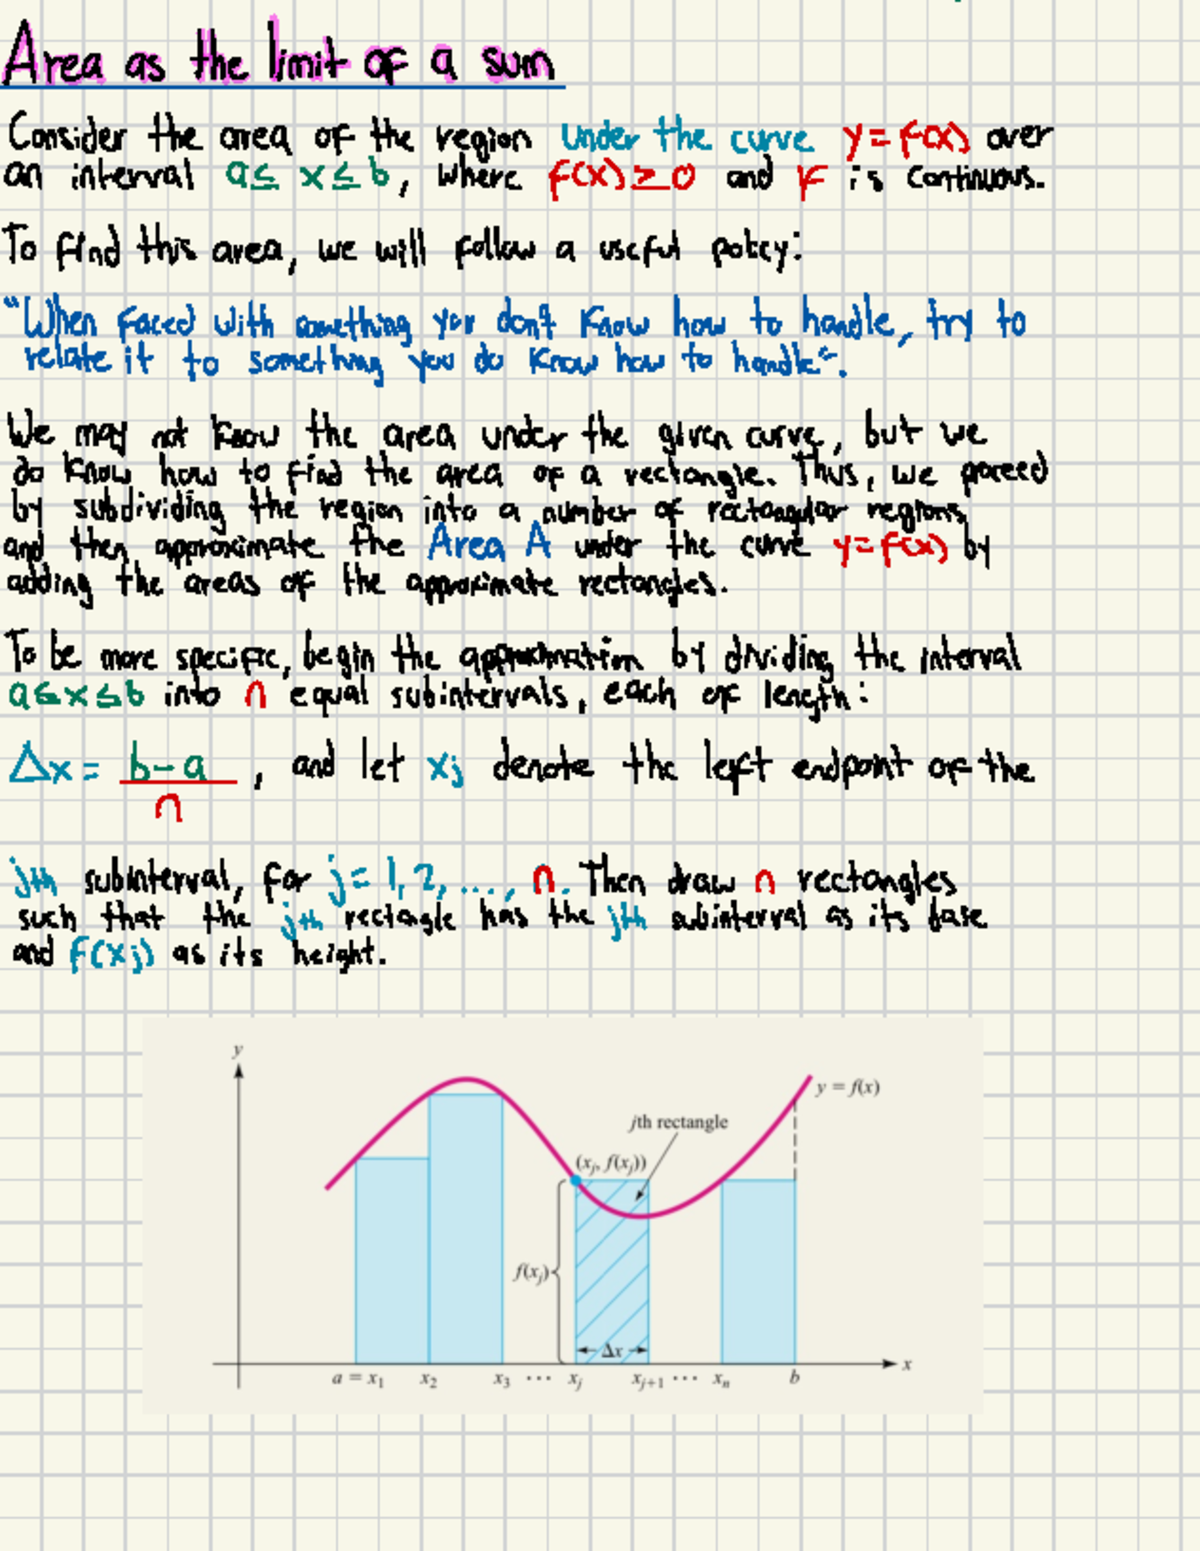 Area as the limit of a sum
Consider the area of the region under the curve y = f(x) over
an interval a ≤ x ≤ b, where f(x) ≥ 0 and f is continuous.
To find this area, we will follow a useful policy:
"When faced with something you don't know how to handle, try to
relate it to something you do know how to handle".
We may not know the area under the given curve, but we
do know how to find the area of a rectangle. Thus, we proceed
by subdividing the region into a number of rectangular regions
and then approximate the Area A under the curve y = f(x) by
adding the areas of the approximate rectangles.
To be more specific, begin the approximation by dividing the interval
a ≤ x ≤ b into n equal subintervals, each of length:
Δx = b - a / n , and let xj denote the left endpoint of the
jth subinterval, for j = 1, 2, ..., n. Then draw n rectangles
such that the jth rectangle has the jth subinterval as its base
and f(xj) as its height.
y
y = f(x)
jth rectangle
(xj, f(xj))
f(xj)
Δx
x
a = x1 x2 x3 ... xj xj+1 ... xn b